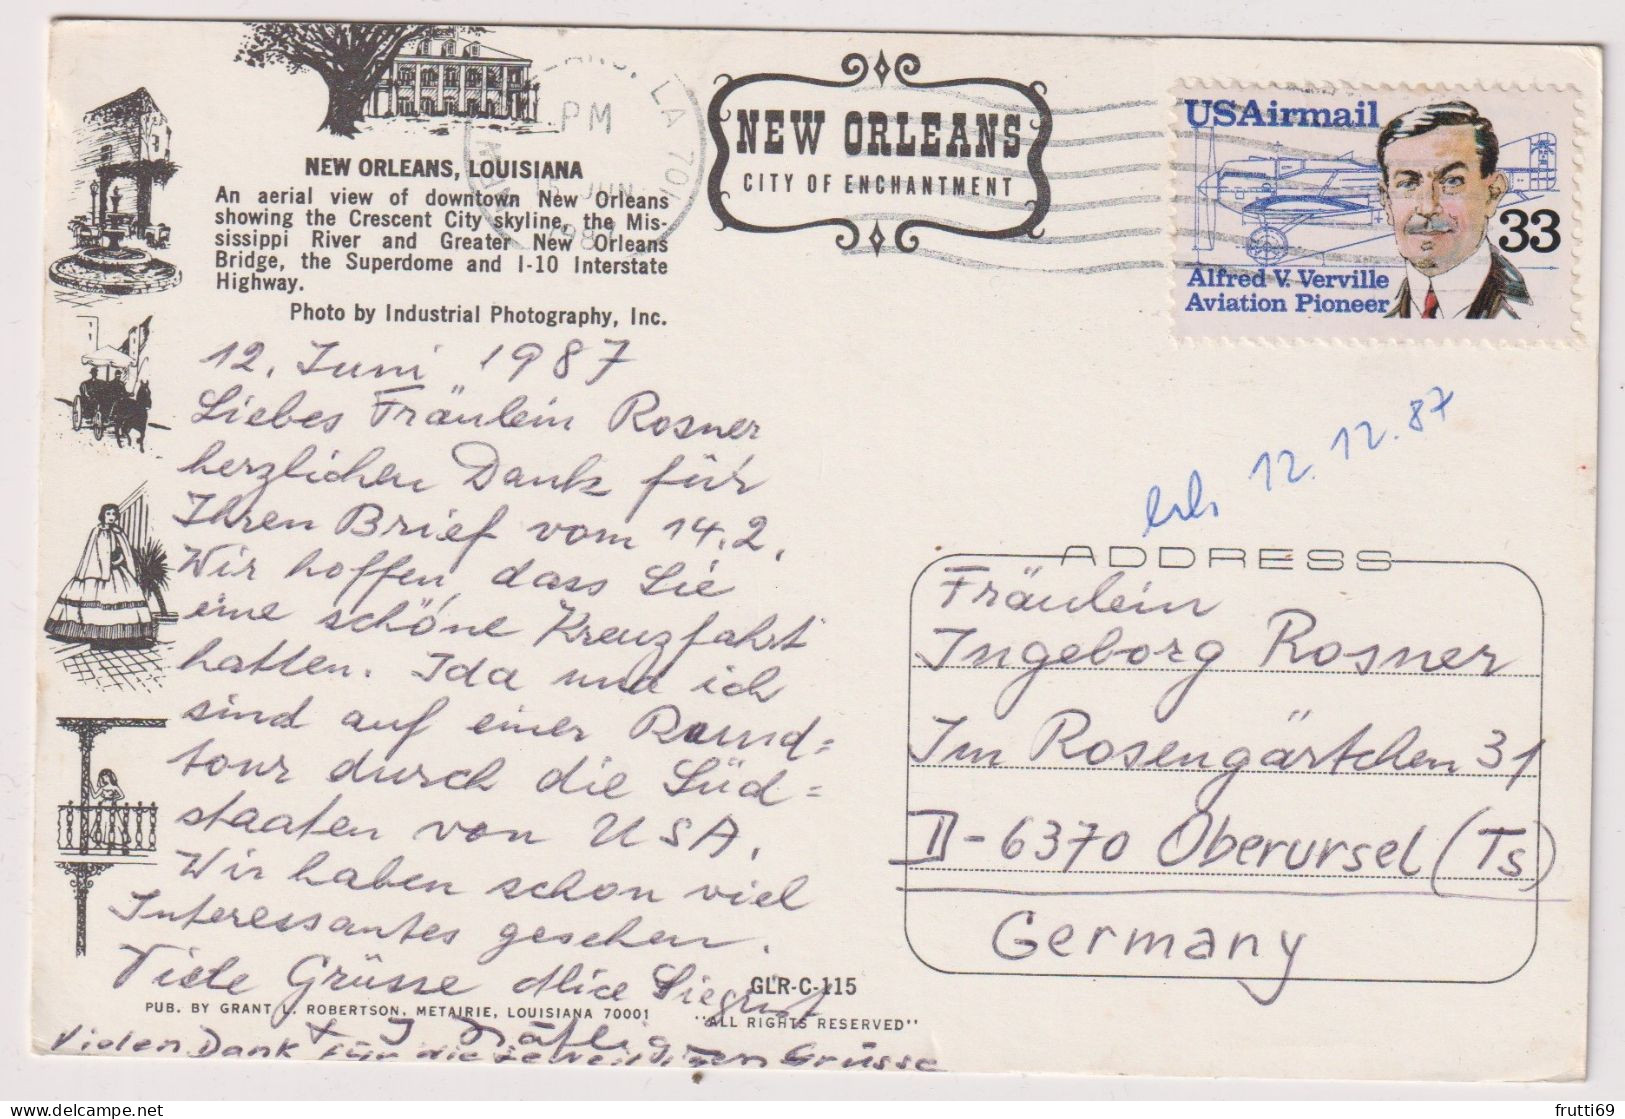 NEW ORLEANS, LOUISIANA
An aerial view of downtown New Orleans
showing the Crescent City skyline, the Mis-
sissippi River and Greater New Orleans
Bridge, the Superdome and I-10 Interstate
Highway.
Photo by Industrial Photography, Inc.
12. Juni 1987
Liebes Fräulein Rosner,
herzlichen Dank für
Ihren Brief vom 14.2.
Wir hoffen, dass Sie
eine schöne Kreuzfahrt
hatten. Ida und ich
sind auf einer Rund=
tour durch die Süd=
staaten von USA.
Wir haben schon viel
Interessantes gesehen.
Viele Grüsse Alice Siegrist
GLR-C-115
PUB. BY GRANT L. ROBERTSON, METAIRIE, LOUISIANA 70001
"ALL RIGHTS RESERVED"
+ I
Vielen Dank für die Grüsse
PM
JUN
NEW ORLEANS
CITY OF ENCHANTMENT
USAirmail
33
Alfred V. Verville
Aviation Pioneer
12.12.87
ADDRESS
Fräulein
Ingeborg Rosner
Im Rosengärtchen 31
D-6370 Oberursel (Ts)
Germany
frutti69